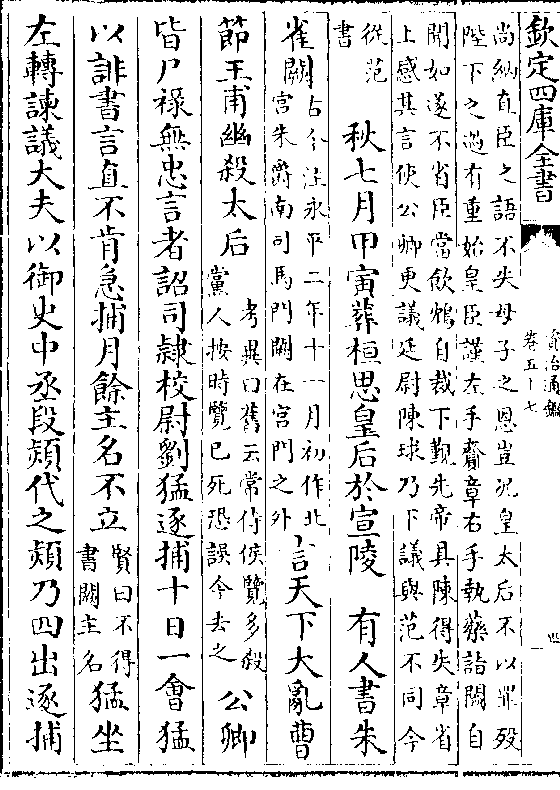 欽定四庫全書
資治通鑑
卷五十七
尚納直臣之語不失母子之恩豈況皇太后不以罪歿
陛下之過有重始皇臣謹左手齎章右手執藥詣闕自
聞如遂不省臣當飲鴆自裁下覲先帝具陳得失章省
上感其言使公卿更議廷尉陳球乃下議與范不同今
從范
書
秋七月甲寅葬桓思皇后於宣陵 有人書朱
雀闕
古今注永平二年十一月初作北
宮朱爵南司馬門闕在宮門之外
言天下大亂曹
節王甫幽殺太后
考異曰舊云常侍侯覽多殺
黨人按時覽已死恐誤今去之
公卿
皆尸祿無忠言者詔司隸校尉劉猛逐捕十日一會猛
以誹書言直不肯急捕月餘主名不立
賢曰不得
書闕主名
猛坐
左轉諫議大夫以御史中丞段熲代之熲乃四出逐捕